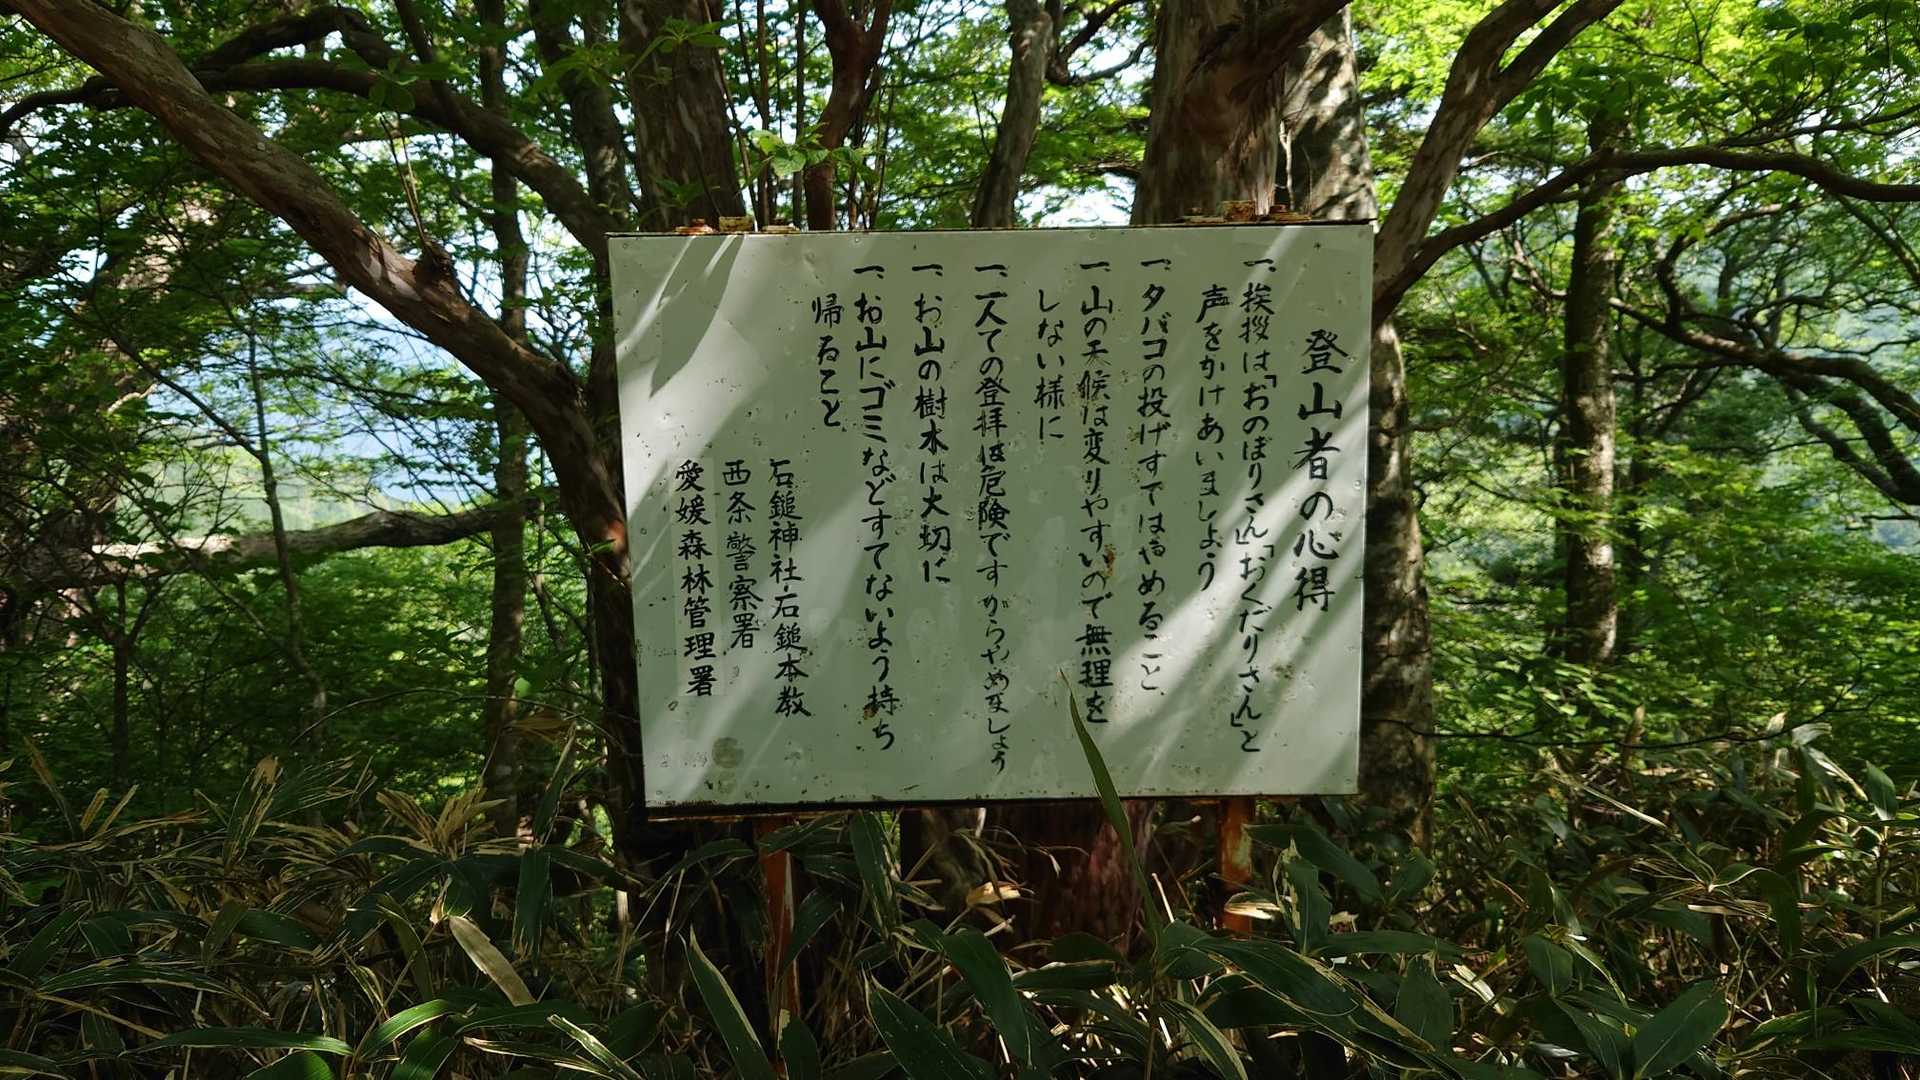 登山者の心得
一、挨拶は「おのぼりさん」「おくだりさん」と
声をかけあいましょう
一、タバコの投げすてはやめること、
一、山の天候は変りやすいので無理を
しない様に
一、一人での登拝は危険ですからやめましょう
一、お山の樹木は大切に
一、お山にゴミなどすてないよう持ち
帰ること
石鎚神社・石鎚本教
西条警察署
愛媛森林管理署